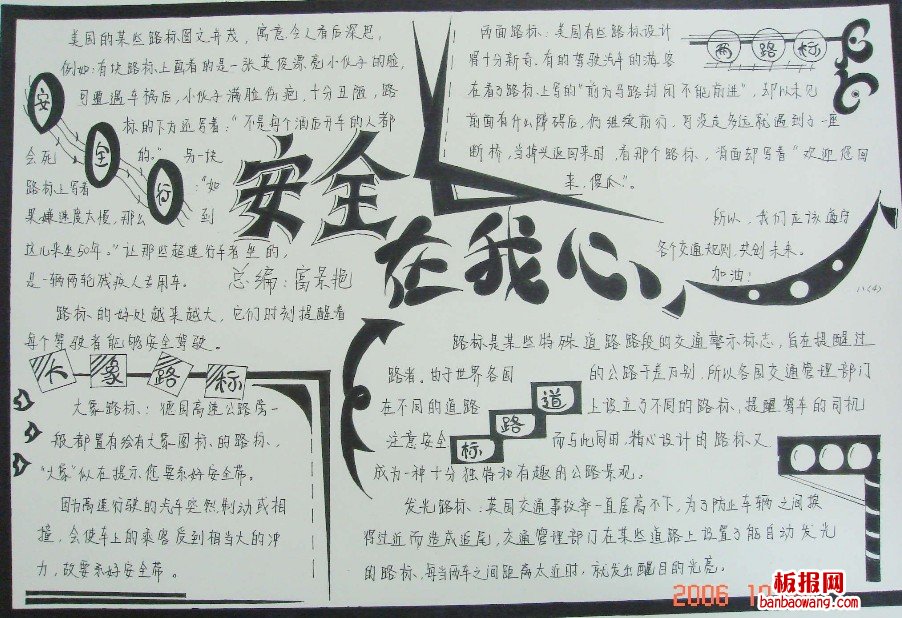 美国的某些路标图文并茂，寓意令人看后深思，
例如:有块路标上画着的是一张英俊漂亮小伙子的脸，
可遭遇车祸后，小伙子满脸伤疤，十分丑陋，路
标的下方还写着："不是每个酒后开车的人都
会死的。"另一块
路标上写着："如
果嫌速度太慢，那么到
这儿来坐50年。"让那些超速行车者坐的，
是一辆两轮残疾人专用车。
路标的好处越来越大，它们时刻提醒着
每个驾驶者能够安全驾驶。
安全行
安全
在我心
总编:
大象路标
大象路标：德国高速公路旁一
般都置有绘有大象图标的路标，
"大象"似在提示您要系好安全带。
因为高速行驶的汽车突然制动或相
撞，会使车上的乘客受到相当大的冲
力，故要系好安全带。
两路标
两面路标：美国有些路标设计
得十分新奇。有的驾驶汽车的游客
在看了路标上写的"前方马路封闭不能前进"，却以未见
前面有什么障碍后，仍继续前行，可没走多远就遇到了一座
断桥，当掉头返回来时，看那个路标，背面却写着"欢迎您回
来，傻瓜"。
所以，我们应该遵守
各个交通规则，共创未来。
加油！
八(4)
路标是某些特殊道路路段的交通警示标志，旨在提醒过
路者。由于世界各国的公路千差万别，所以各国交通管理部门
在不同的道路上设立了不同的路标，提醒驾车的司机
注意安全，而与此同时，精心设计的路标又
成为一种十分独特和有趣的公路景观。
道路标
发光路标：英国交通事故率一直居高不下，为了防止车辆之间挨
得过近而造成追尾，交通管理部门在某些道路上设置了能自动发光
的路标，每当两车之间距离太近时，就发出醒目的光亮。
2006
板报网
banbaowang.com